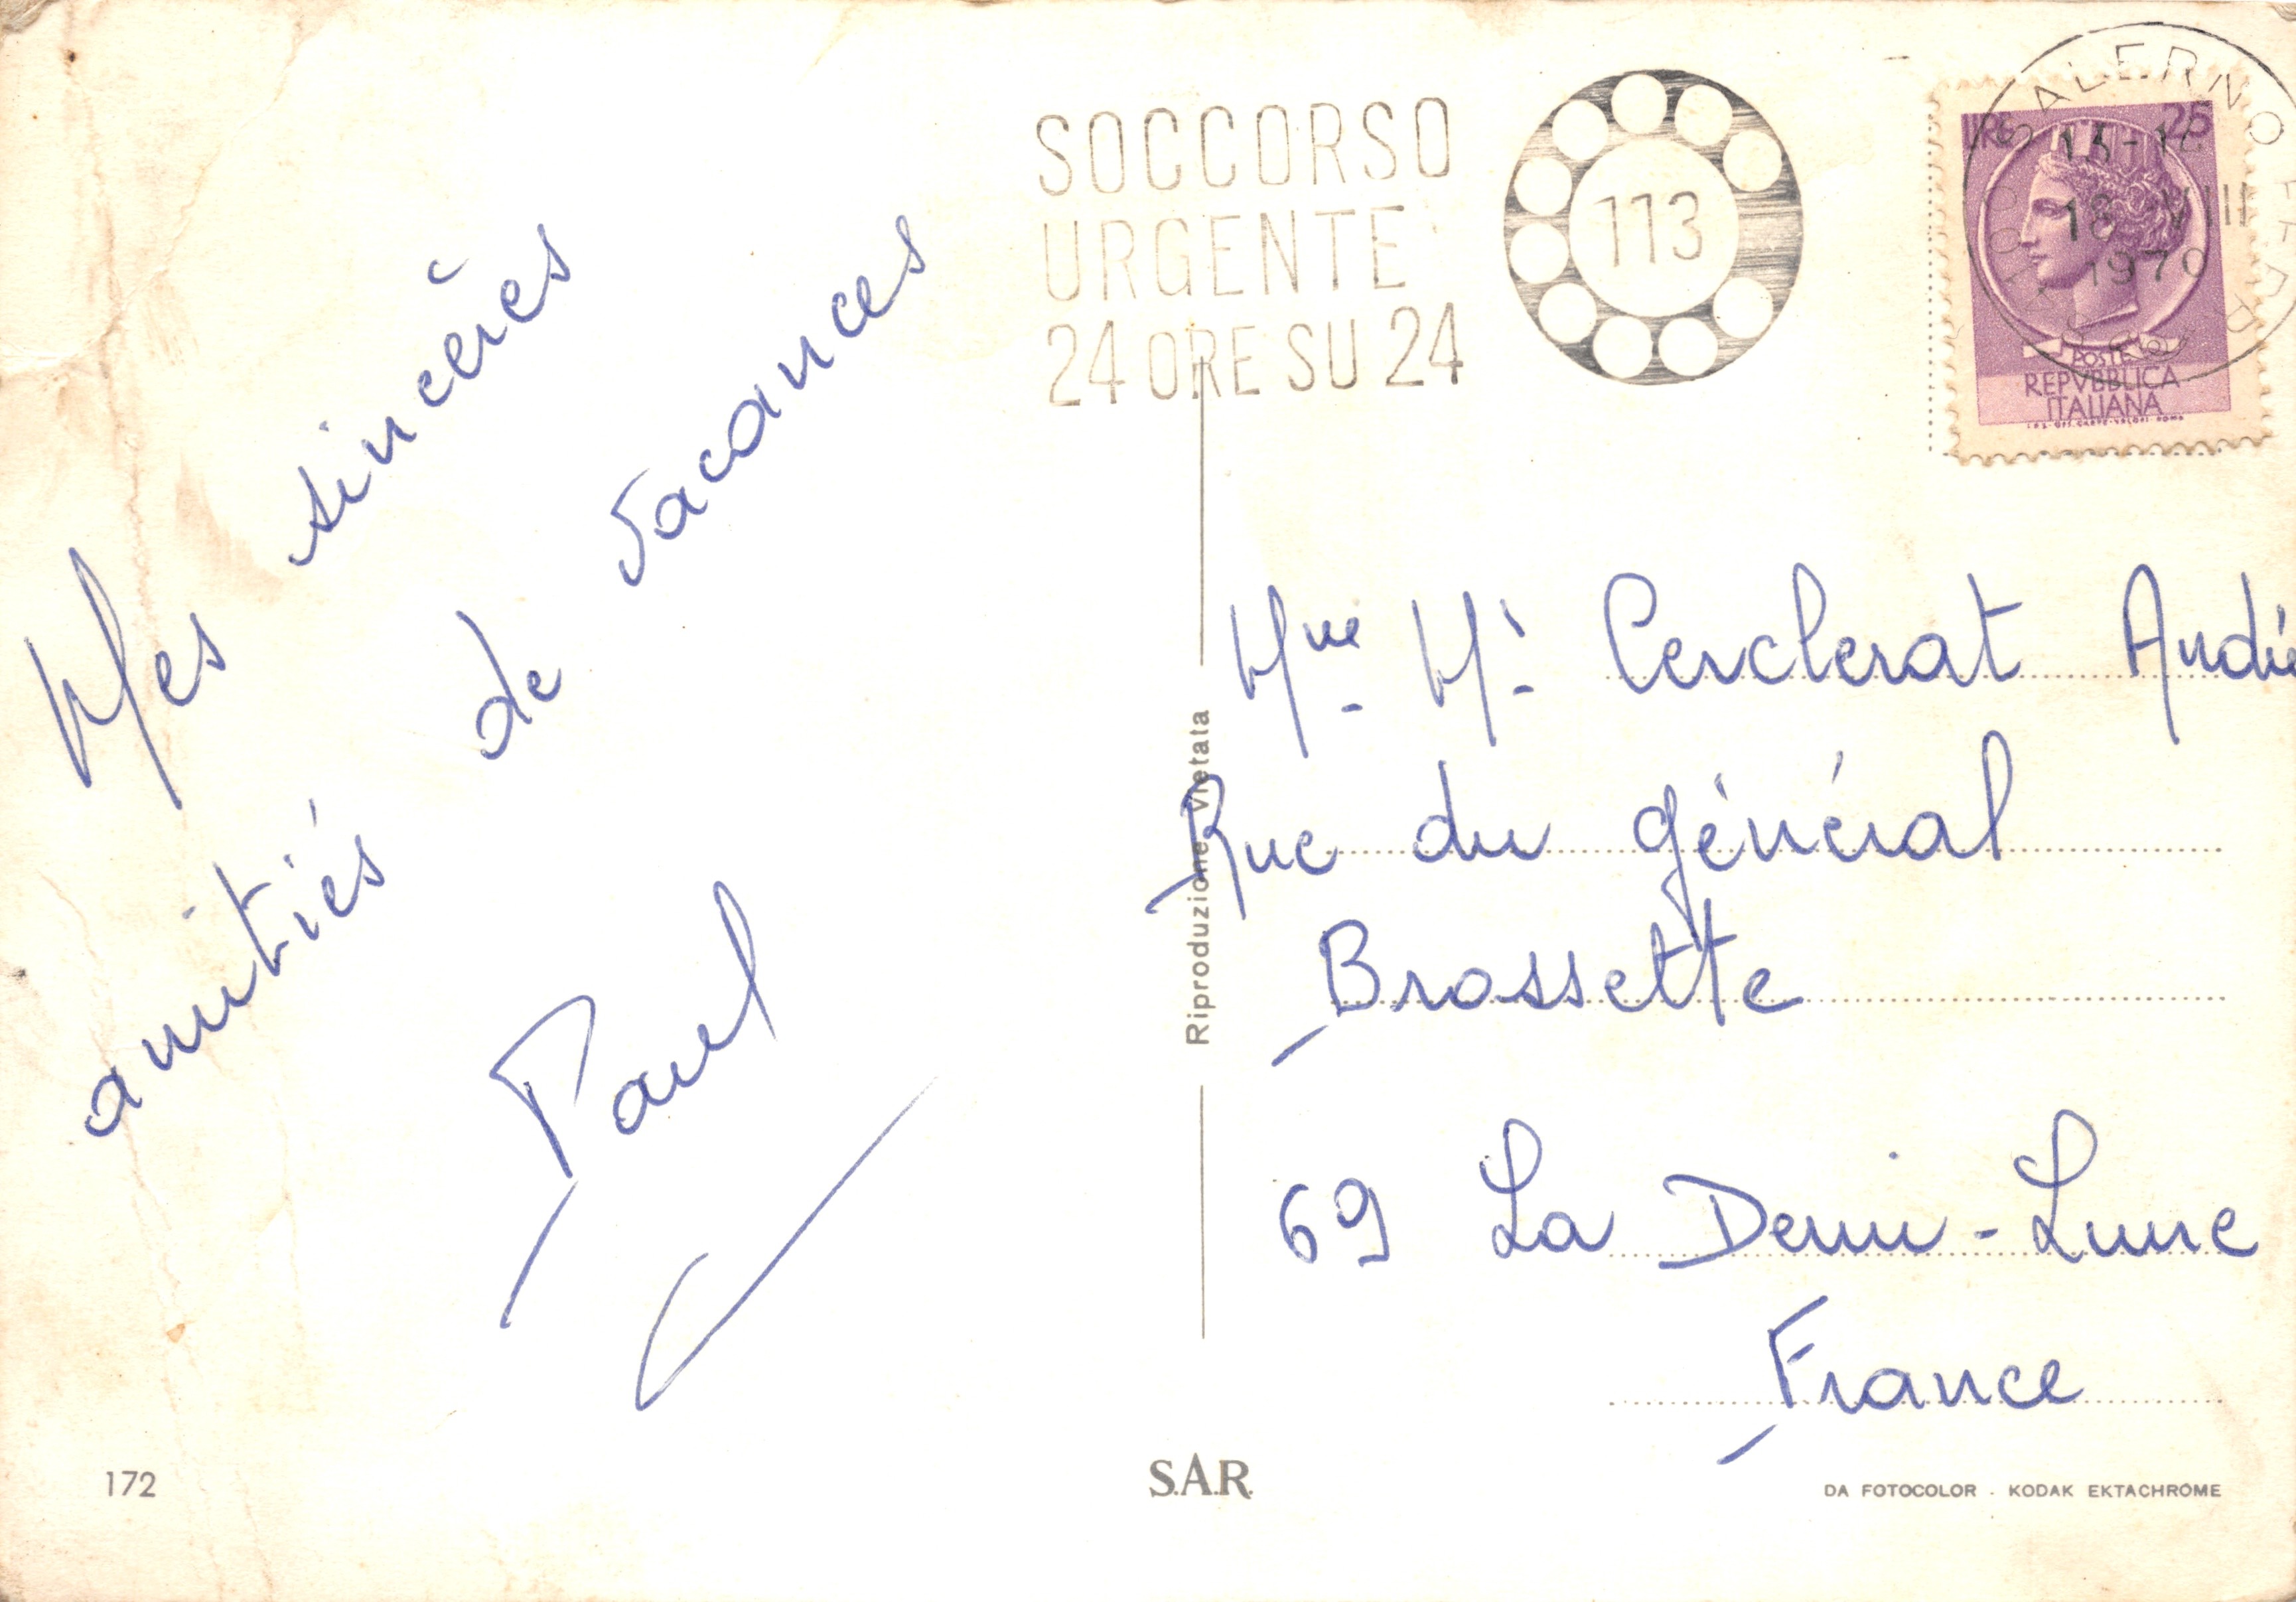 Mes sincères
amitiés de vacances
Paul
172
SOCCORSO
URGENTE
24 ORE SU 24
113
SALERNO FERR
13-14
18 VIII
1970
LIRE 25
POSTE
REPVBBLICA
ITALIANA
I.P.S.-OFF.CARTE-VALORI-ROMA
Riproduzione vietata
Mme Mr Cerclerat André
Rue du général
Brossette
69 La Demi-Lune
France
S.A.R.
DA FOTOCOLOR - KODAK EKTACHROME